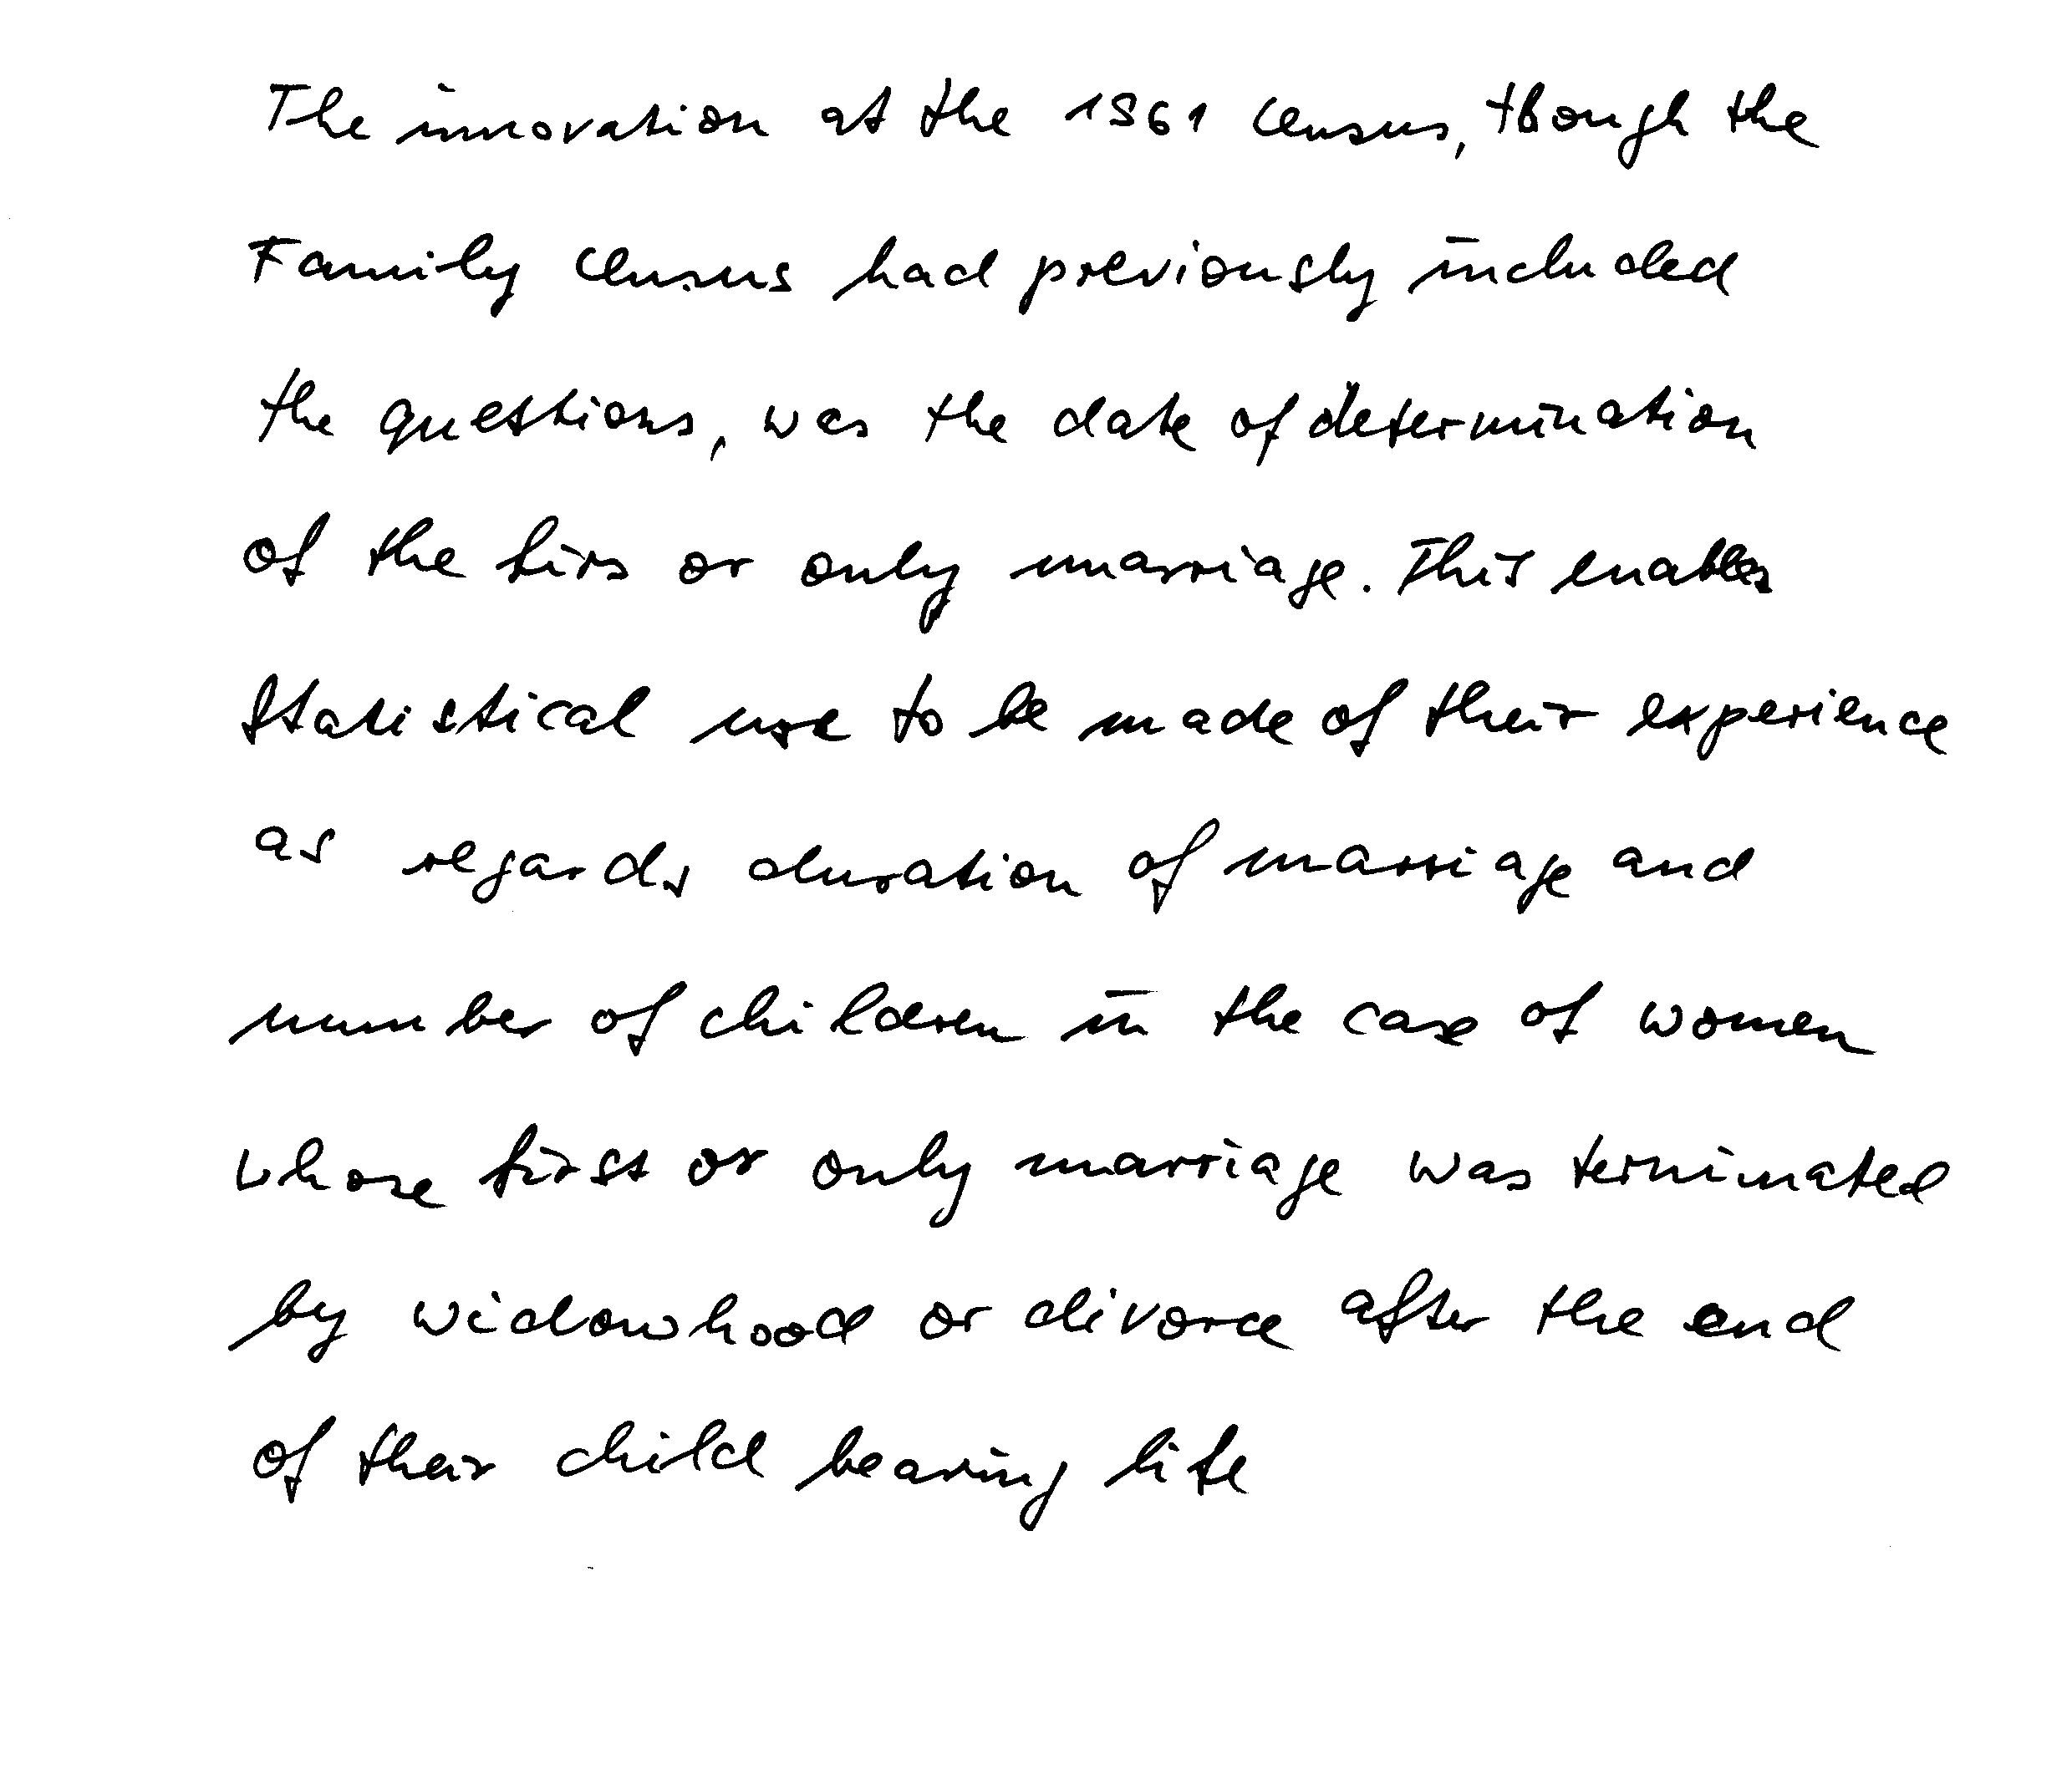 The innovation at the 1961 Census, though the
Family Census had previously included
the questions, was the date of determination
of the firs or only marriage. This enables
statistical use to be made of their experience
as regards duration of marriage and
number of children in the case of women
whose first or only marriage was terminated
by widowhood or divorce after the end
of their child bearing life